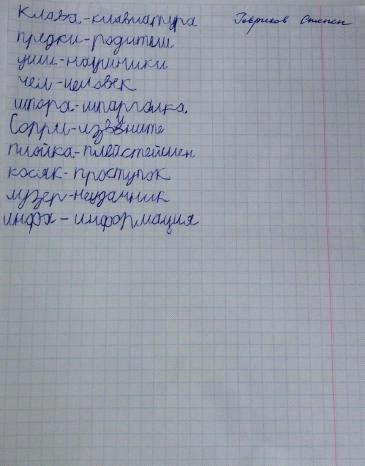 клава-клавиатура
Гавриков Степан
предки-родители
уши-наушники
чел-человек
шпора-шпаргалка.
Сорри-извените
плойка-плейстейшен
косяк-проступок
лузер-неудачник
инфа-информация